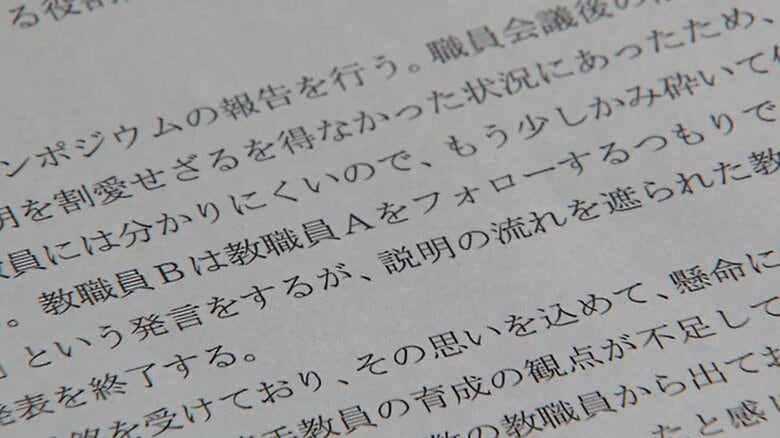 る役割
ンポジウムの報告を行う。職員会議後の
明を割愛せざるを得なかった状況にあったため、
教員には分かりにくいので、もう少しかみ砕いて
。教職員Bは教職員Aをフォローするつもりで
」という発言をするが、説明の流れを遮られた教
発表を終了する。
を受けており、その思いを込めて、懸命に
手教員の育成の観点が不足して
数の教職員から出てお
たと感じ